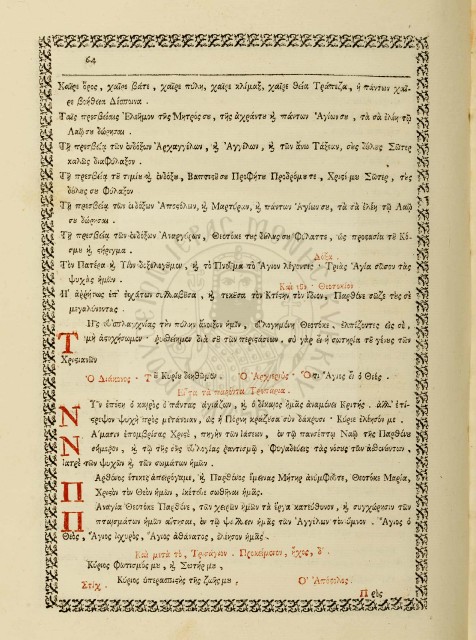 64
Χαῖρε ὄρος, χαῖρε βάτε, χαῖρε πύλη, χαῖρε κλίμαξ, χαῖρε θεία Τράπεζα, ἡ πάντων χαῖ-
ρε βοήθεια Δέσποινα.
Ταῖς πρεσβείαις Ἐλεῆμον τῆς Μητρός σου, τῆς ἀχράντου καὶ πάντων Ἁγίων σου, τὰ σὰ ἐλέη τῷ
Λαῷ σου δώρησαι.
Τῇ πρεσβείᾳ τῶν ἐνδόξων Ἀρχαγγέλων, καὶ Ἀγγέλων, καὶ τῶν ἄνω Τάξεων, τοὺς δούλους Σῶτερ
καλῶς διαφύλαξον.
Τῇ πρεσβείᾳ τοῦ τιμίου καὶ ἐνδόξου, Βαπτιστοῦ Προφήτου Προδρόμου τε, Χριστέ μου Σῶτερ, τοὺς
δούλους σου φύλαξον
Τῇ πρεσβείᾳ τῶν ἐνδόξων Ἀποστόλων, καὶ Μαρτύρων, καὶ πάντων Ἁγίων σου, τὰ σὰ ἐλέη τῷ Λαῷ
σου δώρησαι.
Τῇ πρεσβείᾳ τῶν ἐνδόξων Ἀναργύρων, Θεοτόκε τοὺς δούλους σου φύλαττε, ὡς προστασία τοῦ Κό-
σμου καὶ στήριγμα.
Δόξα.
Τὸν Πατέρα καὶ Υἱὸν δοξολογήσωμεν, καὶ τὸ Πνεῦμα τὸ Ἅγιον λέγοντες· Τριὰς Ἁγία σῶσον τὰς
ψυχὰς ἡμῶν.
Καὶ νῦν. Θεοτοκίον
Ἡ ἀῤῥήτως ἐπ' ἐσχάτων συλλαβοῦσα, καὶ τεκοῦσα τὸν Κτίστην τὸν ἴδιον, Παρθένε σῶζε τοὺς σὲ
μεγαλύνοντας.
Τῆς εὐσπλαγχνίας τὴν πύλην ἄνοιξον ἡμῖν, εὐλογημένη Θεοτόκε. ἐλπίζοντες εἰς σὲ,
μὴ ἀστοχήσωμεν· ῥυσθείημεν διὰ σοῦ τῶν περιστάσεων, σὺ γὰρ εἶ ἡ σωτηρία τοῦ γένους τῶν
Χριστιανῶν
Ὁ Διάκονος· Τοῦ Κυρίου δεηθῶμεν· Ὁ Ἀρχιερεύς· Ὅτι Ἅγιος εἶ ὁ Θεὸς.
Εἶτα τὰ παρόντα Τροπάρια.
Νῦν ἐπέστη ὁ καιρὸς ὁ πάντας ἁγιάζων, καὶ ὁ δίκαιος ἡμᾶς ἀναμένει Κριτής. ἀλλ' ἐπί-
στρεψον ψυχὴ πρὸς μετάνοιαν, ὡς ἡ Πόρνη κράζουσα σὺν δάκρυσι· Κύριε ἐλέησόν με.
Νάμασιν ἐπομβρίσας Χριστὲ, πηγὴν τῶν ἰάσεων, ἐν τῷ πανσέπτῳ Ναῷ τῆς Παρθένου
σήμερον, καὶ τῷ τῆς σῆς εὐλογίας ῥαντισμῷ, Φυγαδεύεις τὰς νόσους τῶν ἀσθενούντων,
Ἰατρὲ τῶν ψυχῶν καὶ τῶν σωμάτων ἡμῶν.
Παρθένος ἔτεκες ἀπειρόγαμε, καὶ Παρθένος ἔμεινας Μήτηρ ἀνύμφευτε, Θεοτόκε Μαρία,
Χριστὸν τὸν Θεὸν ἡμῶν, ἱκέτευε σωθῆναι ἡμᾶς.
Παναγία Θεοτόκε Παρθένε, τῶν χειρῶν ἡμῶν τὰ ἔργα κατεύθυνον, καὶ συγχώρησιν τῶν
πταισμάτων ἡμῶν αἴτησαι, ἐν τῷ ψάλλειν ἡμᾶς τῶν Ἀγγέλων τὸν ὕμνον. Ἅγιος ὁ
Θεὸς, Ἅγιος Ἰσχυρὸς, Ἅγιος ἀθάνατος, ἐλέησον ἡμᾶς.
Καὶ μετὰ τὸ, Τρισάγιον. Προκείμενον, ἦχος, δ'.
Κύριος Φωτισμός μου, καὶ Σωτήρ μου,
Στίχ. Κύριος ὑπερασπιστὴς τῆς ζωῆς μου, Ὁ Ἀπόστολος.
Πρὸς